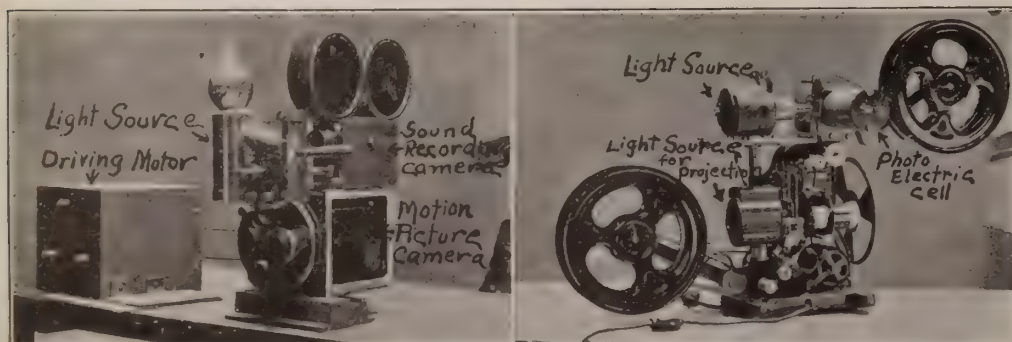 Light Source
Driving Motor
Sound
Recording
Camera
Motion
Picture
Camera
Light Source
Light Source
for
projection
Photo
Electric
cell